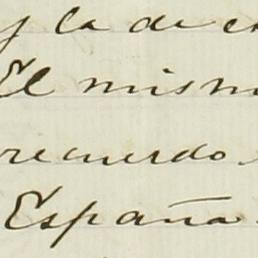 y la de
El mism
recuerdo
España